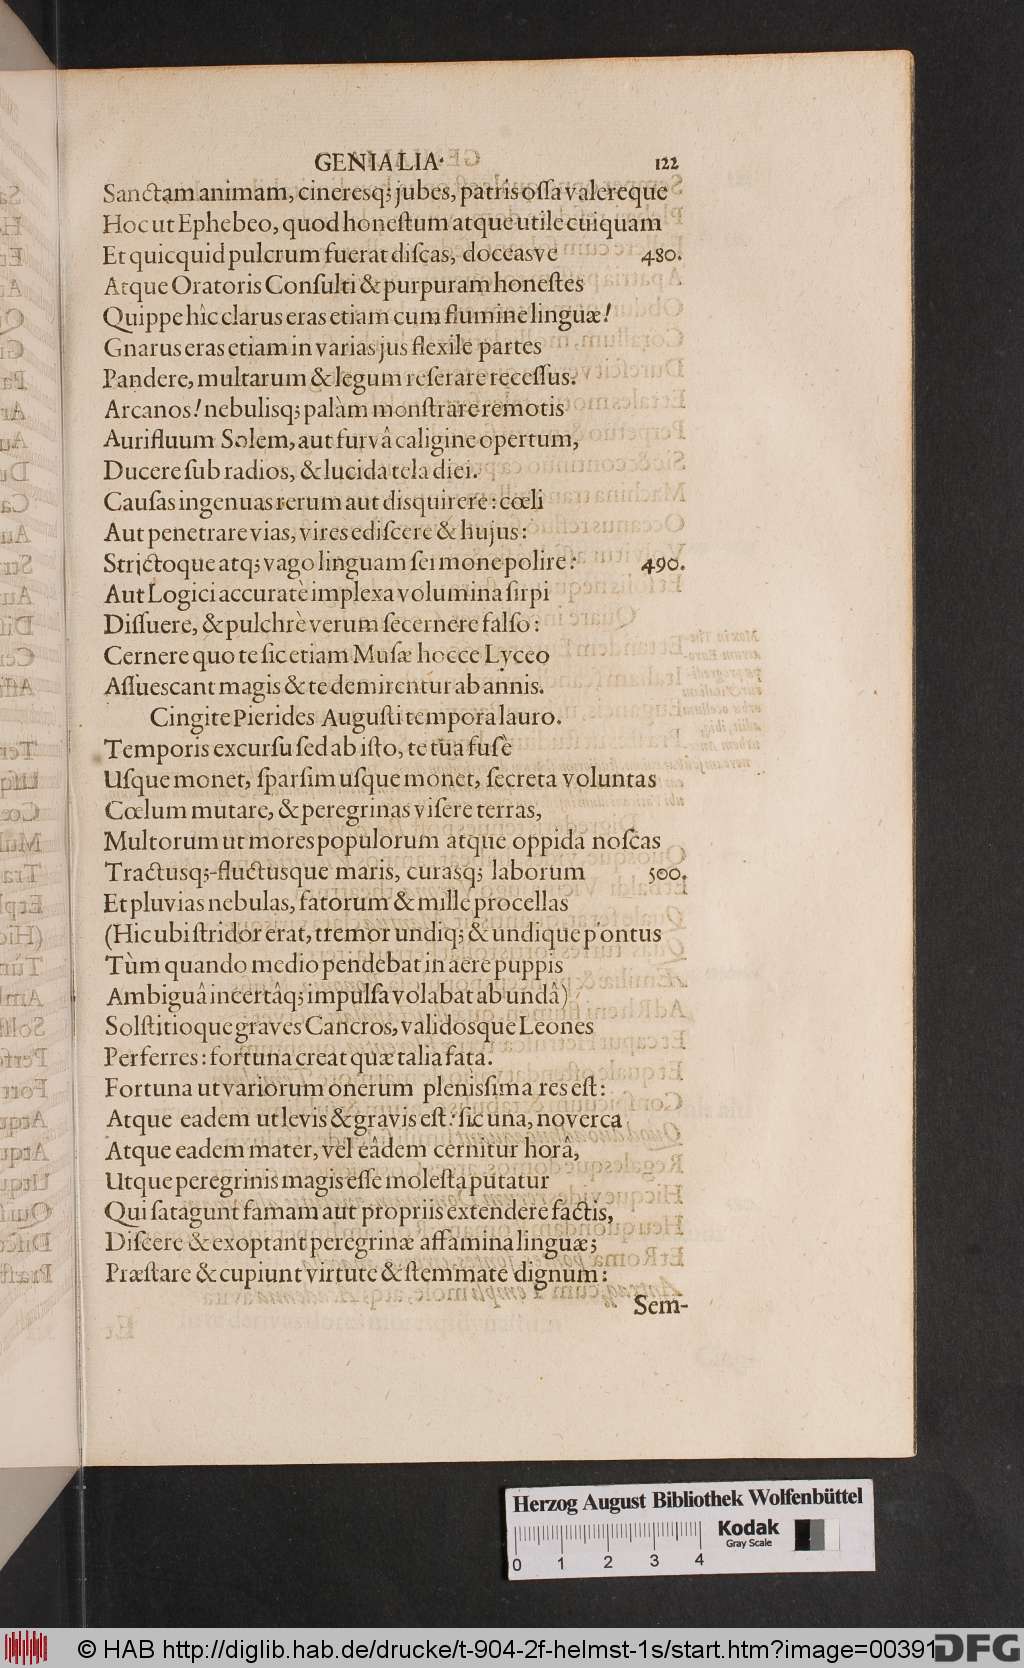 GENIALIA. 122
Sanctam animam, cineresq; jubes, patris ossa valereque
Hoc ut Ephebeo, quod honestum atque utile cuiquam
Et quicquid pulcrum fuerat discas, doceasve 480.
Atque Oratoris Consulti & purpuram honestes
Quippe hîc clarus eras etiam cum flumine linguæ!
Gnarus eras etiam in varias jus flexile partes
Pandere, multarum & legum reserare recessus.
Arcanos! nebulisq; palàm monstrare remotis
Aurifluum Solem, aut furvâ caligine opertum,
Ducere sub radios, & lucida tela diei.
Causas ingenuas rerum aut disquirere: cœli
Aut penetrare vias, vires ediscere & hujus:
Strictoque atq; vago linguam sermone polire: 490.
Aut Logici accuratè implexa volumina sirpi
Dissuere, & pulchrè verum secernere falso:
Cernere quo te sic etiam Musæ hocce Lyceo
Assuescant magis & te demirentur ab annis.
Cingite Pierides Augusti tempora lauro.
Temporis excursu sed ab isto, te tua fusè
Usque monet, sparsim usque monet, secreta voluntas
Cœlum mutare, & peregrinas visere terras,
Multorum ut mores populorum atque oppida noscas
Tractusq;-fluctusque maris, curasq; laborum 500.
Et pluvias nebulas, fatorum & mille procellas
(Hic ubi stridor erat, tremor undiq; & undique pontus
Tùm quando medio pendebat in aere puppis
Ambiguâ incertâq; impulsa volabat ab undâ)
Solstitioque graves Cancros, validosque Leones
Perferres: fortuna creat quæ talia fata.
Fortuna ut variorum onerum plenissima res est:
Atque eadem ut levis & gravis est: sic una, noverca
Atque eadem mater, vel eâdem cernitur horâ,
Utque peregrinis magis esse molesta putatur
Qui satagunt famam aut propriis extendere factis,
Discere & exoptant peregrinæ affamina linguæ;
Præstare & cupiunt virtute & stemmate dignum:
Sem-
Herzog August Bibliothek Wolfenbüttel
Kodak
Gray Scale
0 1 2 3 4
© HAB http://diglib.hab.de/drucke/t-904-2f-helmst-1s/start.htm?image=00391
DFG